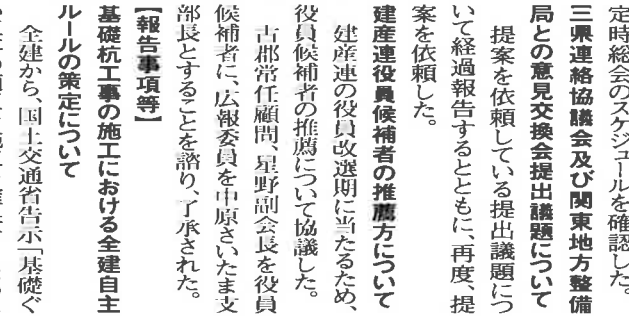 定時総会のスケジュールを確認した。
三県連絡協議会及び関東地方整備
局との意見交換会提出議題について
提案を依頼している提出議題につ
いて経過報告するとともに、再度、提
案を依頼した。
建産連役員候補者の推薦方について
建産連の役員改選期に当たるため、
役員候補者の推薦について協議した。
古郡常任顧問、星野副会長を役員
候補者に、広報委員を中原さいたま支
部長とすることを諮り、了承された。
【報告事項等】
基礎杭工事の施工における全建自主
ルールの策定について
全建から、国土交通省告示「基礎ぐ